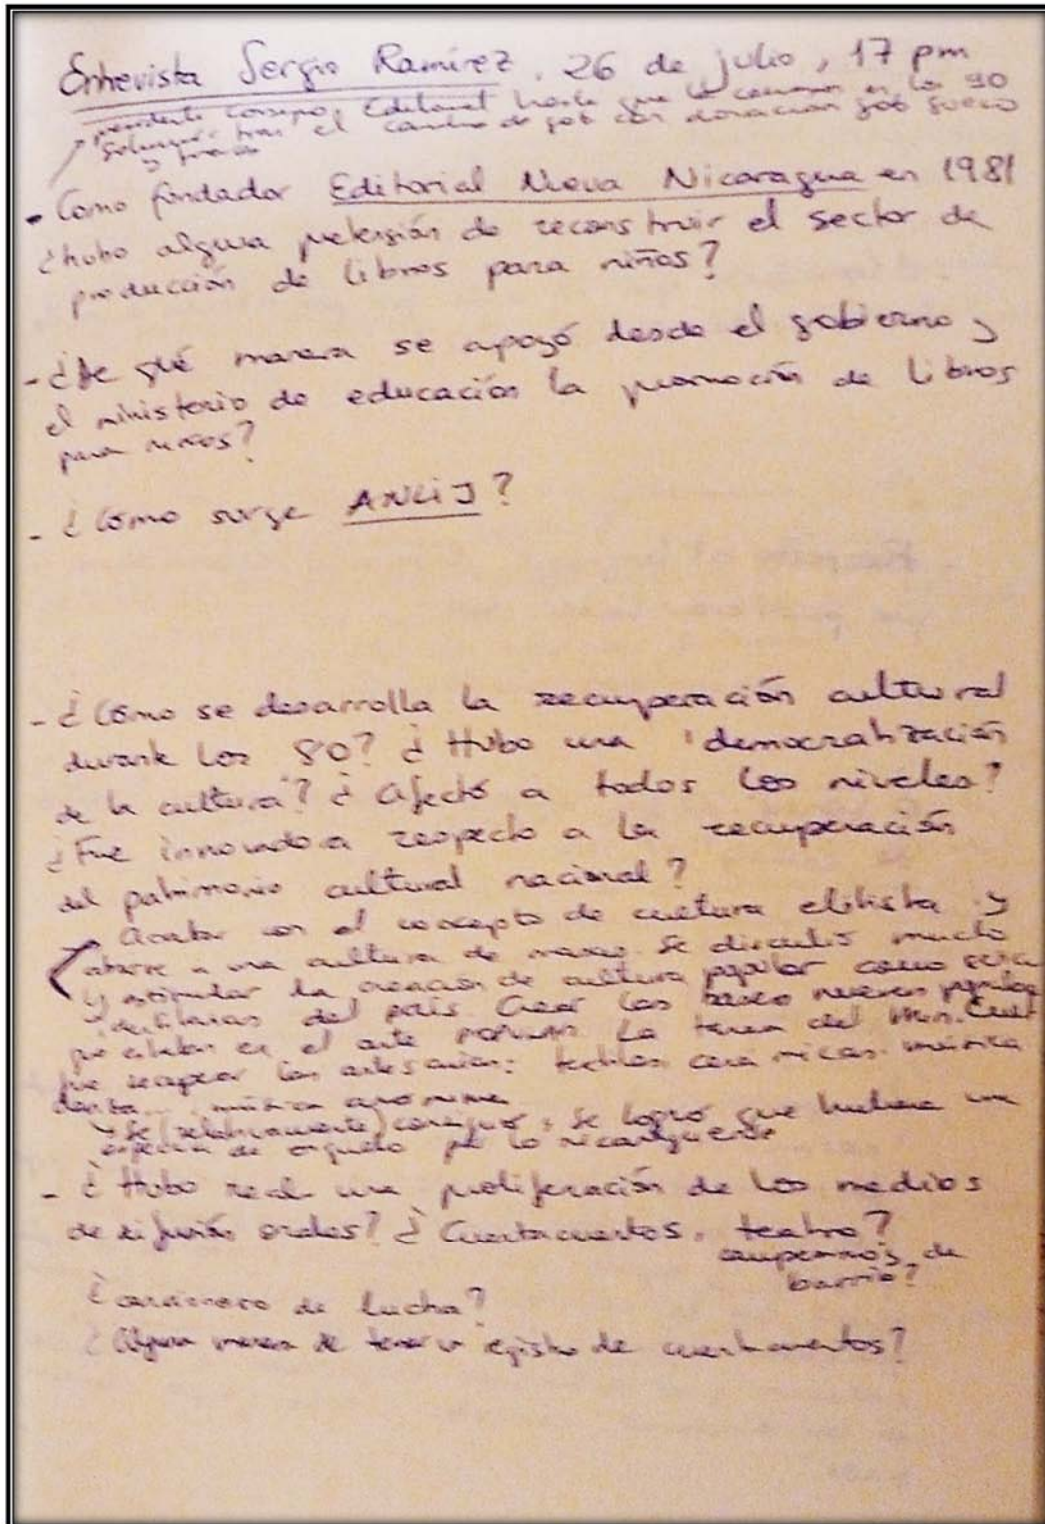 Entrevista Sergio Ramírez. 26 de julio, 17 pm
presidente consejo Editorial hasta que en los 90
tras el cambio de gob con donación gob sueco
- Como fundador Editorial Nueva Nicaragua en 1981
¿hubo alguna pretensión de reconstruir el sector de
producción de libros para niños?
- ¿De qué manera se apoyó desde el gobierno y
el ministerio de educación la promoción de libros
para niños?
- ¿Cómo surge ANLIJ?
- ¿Cómo se desarrolla la recuperación cultural
durante los 80? ¿Hubo una 'democratización
de la cultura'? ¿Afectó a todos los niveles?
¿Fue innovadora respecto a la recuperación
del patrimonio cultural nacional?
Acabar con el concepto de cultura elitista y
a una cultura de masas. Se discutió mucho
y estipular la creación de cultura popular como
del país. Crear las bases nuevas
que estaban en el arte popular. La tarea del Min. Cult
fue recuperar las artesanías: textiles, cerámicas. música
danza... música anónima
Se (relativamente) consiguió. Se logró que hubiera una
especie de orgullo por lo nicaragüense
- ¿Hubo real una proliferación de los medios
de difusión orales? ¿Cuentacuentos, teatro?
campesinos, de
barrio?
¿ de lucha?
¿Alguna manera de tener un registro de cuentacuentos?